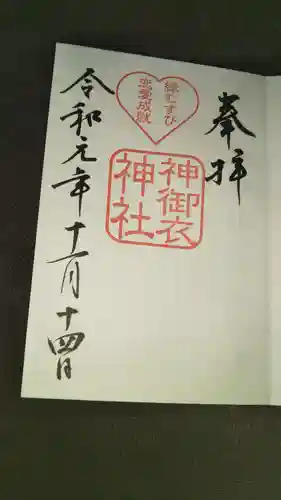 奉拝
縁むすび
恋愛成就
神御衣
神社
令和元年十一月十四日